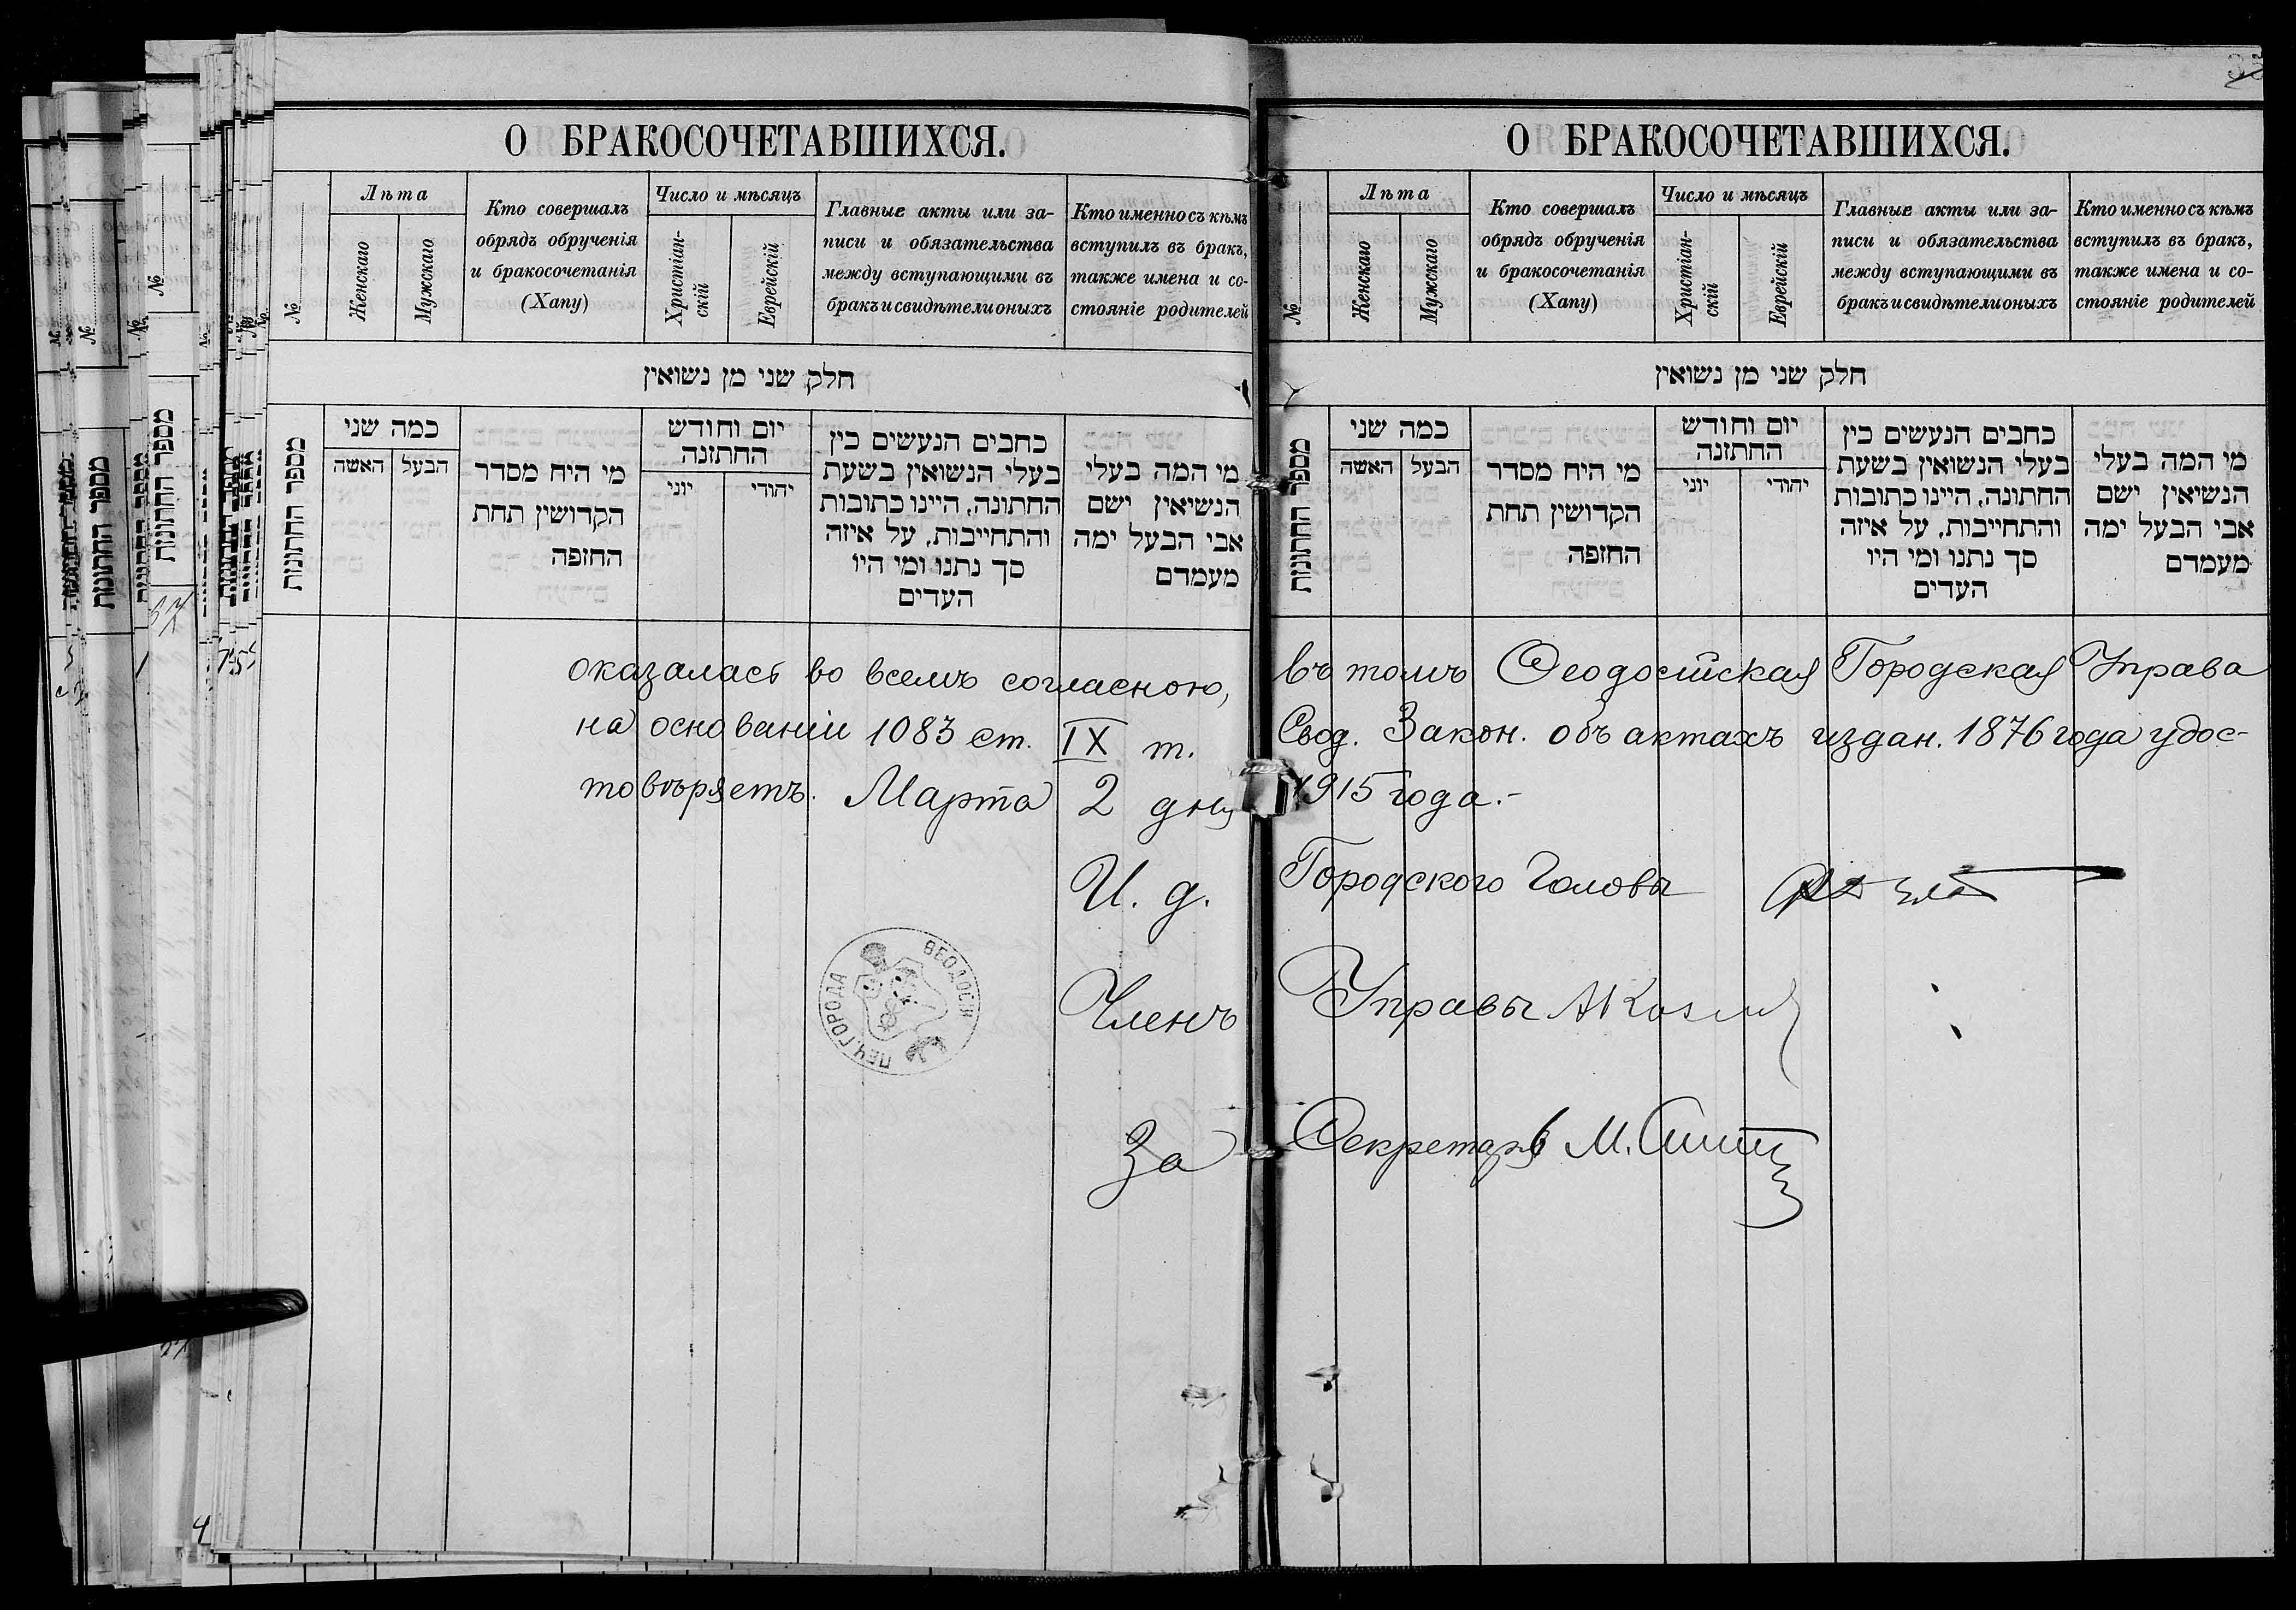 О БРАКОСОЧЕТАВШИХСЯ.
№
Лѣта
Женскаго
Мужскаго
Кто совершалъ
обрядъ обрученія
и бракосочетанія
(Хапу)
Число и мѣсяцъ
Христіан-
скій
Еврейскій
Главные акты или за-
писи и обязательства
между вступающими въ
бракъ и свидѣтели оныхъ
Кто именно съ кѣмъ
вступилъ въ бракъ,
также имена и со-
стояніе родителей
חלק שני מן נשואין
מספר החתונות
כמה שני
האשה
הבעל
מי היח מסדר
הקדושין תחת
החופה
יום וחודש
החתונה
יוני
יהודי
כחבים הנעשים בין
בעלי הנשואין בשעת
החתונה, היינו כתובות
והתחייבות, על איזה
סך נתנו ומי היו
העדים
מי המה בעלי
הנשיאין ישם
אבי הבעל ימה
מעמדם
О БРАКОСОЧЕТАВШИХСЯ.
№
Лѣта
Женскаго
Мужскаго
Кто совершалъ
обрядъ обрученія
и бракосочетанія
(Хапу)
Число и мѣсяцъ
Христіан-
скій
Еврейскій
Главные акты или за-
писи и обязательства
между вступающими въ
бракъ и свидѣтели оныхъ
Кто именно съ кѣмъ
вступилъ въ бракъ,
также имена и со-
стояніе родителей
חלק שני מן נשואין
מספר החתונות
כמה שני
האשה
הבעל
מי היח מסדר
הקדושין תחת
החופה
יום וחודש
החתונה
יוני
יהודי
כחבים הנעשים בין
בעלי הנשואין בשעת
החתונה, היינו כתובות
והתחייבות, על איזה
סך נתנו ומי היו
העדים
מי המה בעלי
הנשיאין ישם
אבי הבעל ימה
מעמדם
оказалась во всемъ согласною, въ томъ Ѳеодосійская Городская Управа
на основаніи 1083 ст. IX т. Свод. Закон. объ актахъ издан. 1876 года удос-
товѣряетъ. Марта 2 дня 1915 года.-
И. д. Городского Головы
Членъ Управы
За Секретаря М.
ПЕЧ. ГОРОДА ѲЕОДОСІИ